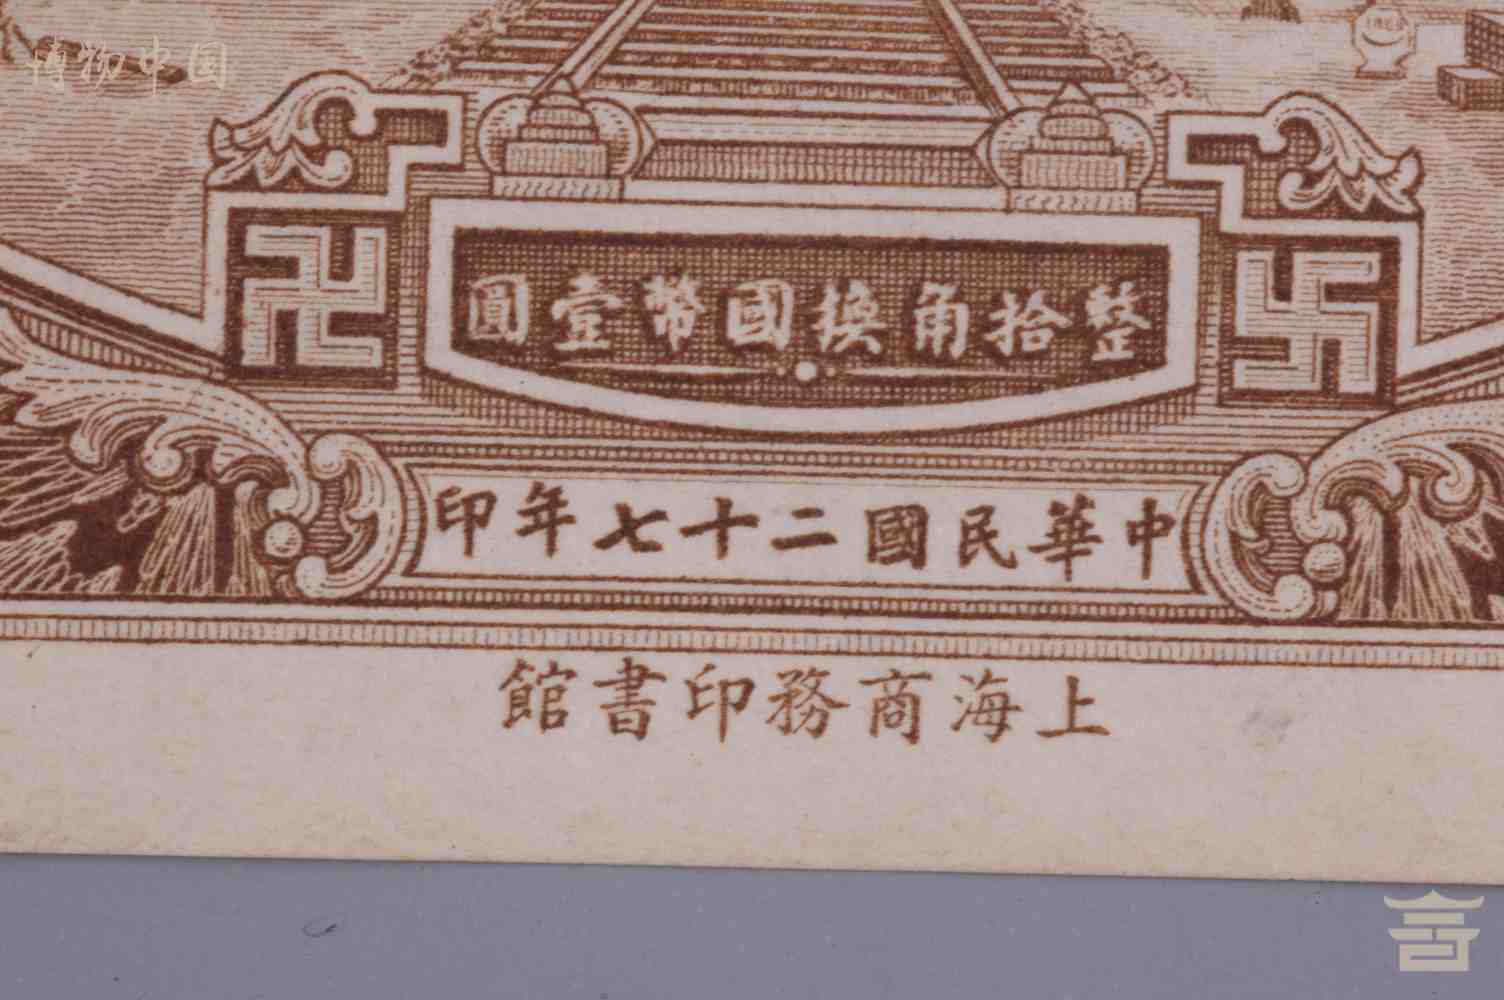 博物中国
整拾角換國幣壹圓
中華民國二十七年印
上海商務印書館